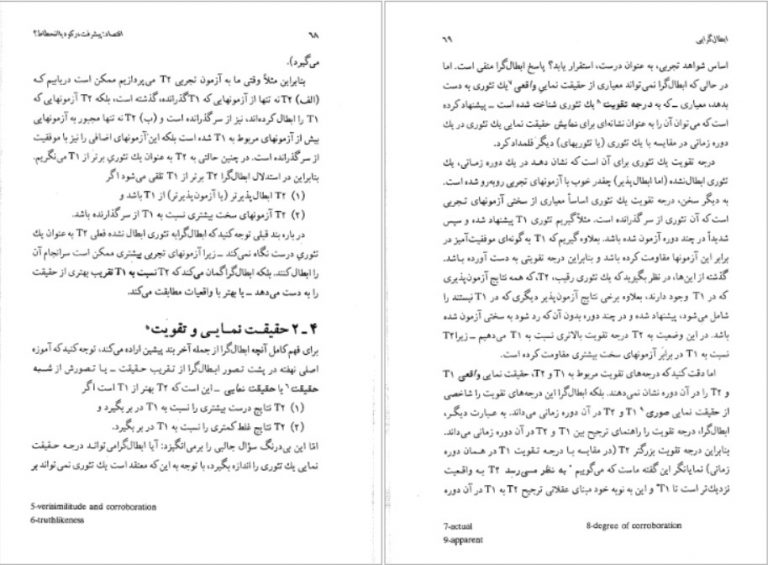 ۶۸
اقتصاد: پیشرفت، رکود یا انحطاط؟
می‌گیرد).
بنابراین مثلاً وقتی ما به آزمون تجربی T۲ می‌پردازیم ممکن است دریابیم که
(الف) T۲ نه تنها از آزمونهایی که T۱ گذرانده، گذشته است، بلکه T۲ آزمونهایی که
T۱ را ابطال کرده‌اند، نیز از سر گذرانده است و (ب) T۲ نه تنها مجبور به آزمونهایی
بیش از آزمونهای مربوط به T۱ شده است بلکه این آزمونهای اضافی را نیز با موفقیت
از سر گذرانده است. در چنین حالتی به T۲ به عنوان یك تئوری برتر از T۱ می‌نگریم.
بنابراین در استدلال ابطال‌گرا T۲ برتر از T۱ تلقی می‌شود اگر
(۱) T۲ ابطال‌پذیرتر (یا آزمون‌پذیرتر) از T۱ باشد و
(۲) T۲ آزمونهای سخت بیشتری نسبت به T۱ از سر گذارنده باشد.
در باره بند قبلی توجه کنید که ابطال‌گرا به تئوری ابطال نشده فعلی T۲ به عنوان یك
تئوری درست نگاه نمی‌کند ـ زیرا آزمونهای تجربی بیشتری ممکن است سرانجام آن
را ابطال کنند. بلکه ابطال‌گرا گمان می‌کند که T۲ نسبت به T۱ تقریب بهتری از حقیقت
را به دست می‌دهد ـ یا بهتر با واقعیات مطابقت می‌کند.
۴ ـ ۲ حقیقت نمایی و تقویت۵
برای فهم کامل آنچه ابطال‌گرا از جمله آخر بند پیشین اراده می‌کند، توجه کنید که آموزه
اصلی نهفته در پشت تصور ابطال‌گرا از تقریب حقیقت ـ یا تصورش از شبه
حقیقت۶ یا حقیقت نمایی ـ این است که T۲ بهتر از T۱ است اگر
(۱) T۲ نتایج درست بیشتری را نسبت به T۱ در بر بگیرد و
(۲) T۲ نتایج غلط کمتری را نسبت به T۱ در بر بگیرد.
امّا این بی‌درنگ سؤال جالبی را برمی‌انگیزد: آیا ابطال‌گرا می‌تواند درجه حقیقت
نمایی یك تئوری را اندازه بگیرد، با توجه به این که معتقد است یك تئوری نمی‌تواند بر
5-verisimilitude and corroboration
6-truthlikeness
ابطال‌گرایی
۶۹
اساس شواهد تجربی، به عنوان درست، استقرار یابد؟ پاسخ ابطال‌گرا منفی است. اما
در حالی که ابطال‌گرا نمی‌تواند معیاری از حقیقت نمایی واقعی۷ یك تئوری به دست
بدهد، معیاری ـ که به درجه تقویت۸ یك تئوری شناخته شده است ـ پیشنهاد کرده
است که می‌توان آن را به عنوان نشانه‌ای برای نمایش حقیقت نمایی یك تئوری در یك
دوره زمانی در مقایسه با یك تئوری (یا تئوریهای) دیگر قلمداد کرد.
درجه تقویت یك تئوری برای آن است که نشان دهد در یك دوره زمانی، یك
تئوری ابطال‌نشده (اما ابطال‌پذیر) چقدر خوب با آزمونهای تجربی روبه‌رو شده است.
به دیگر سخن، درجه تقویت یك تئوری اساساً معیاری از سختی آزمونهای تجربی
است که آن تئوری از سر گذرانده است. مثلاً گیریم تئوری T۱ پیشنهاد شده و سپس
شدیداً در چند دوره آزمون شده باشد. بعلاوه گیریم که T۱ به گونه‌ای موفقیت‌آمیز در
برابر این آزمونها مقاومت کرده باشد و بنابراین درجه تقویتی به دست آورده باشد.
گذشته از این‌ها، در نظر بگیرید که یك تئوری رقیب، T۲، که همه نتایج آزمون‌پذیری
که در T۱ وجود دارند، بعلاوه برخی نتایج آزمون‌پذیر دیگری که در T۱ نیستند را
شامل می‌شود، پیشنهاد شده و در چند دوره بدون آن که رد شود به سختی آزمون شده
باشد. در این وضعیت به T۲ درجه تقویت بالاتری نسبت به T۱ می‌دهیم ـ زیرا T۲
نسبت به T۱ در برابر آزمونهای سخت بیشتری مقاومت کرده است.
اما دقت کنید که درجه‌های تقویت مربوط به T۱ و T۲، حقیقت نمایی واقعی T۱
و T۲ را در آن دوره نشان نمی‌دهند. بلکه ابطال‌گرا این درجه‌های تقویت را شاخصی
از حقیقت نمایی صوری۹ T۱ و T۲ در آن دوره زمانی می‌داند. به عبارت دیگر،
ابطال‌گرا، درجه تقویت را راهنمای ترجیح بین T۱ و T۲ در آن دوره زمانی می‌داند.
بنابراین درجه تقویت بزرگتر T۲ (در مقایسه با درجه تقویت T۱ در همان دوره
زمانی) نمایانگر این گفته ماست که می‌گوییم "به نظر می‌رسد T۲ به واقعیت
نزدیك‌تر است تا T۱" و این به نوبه خود مبنای عقلانی ترجیح T۲ به T۱ در آن دوره
7-actual
8-degree of corroboration
9-apparent